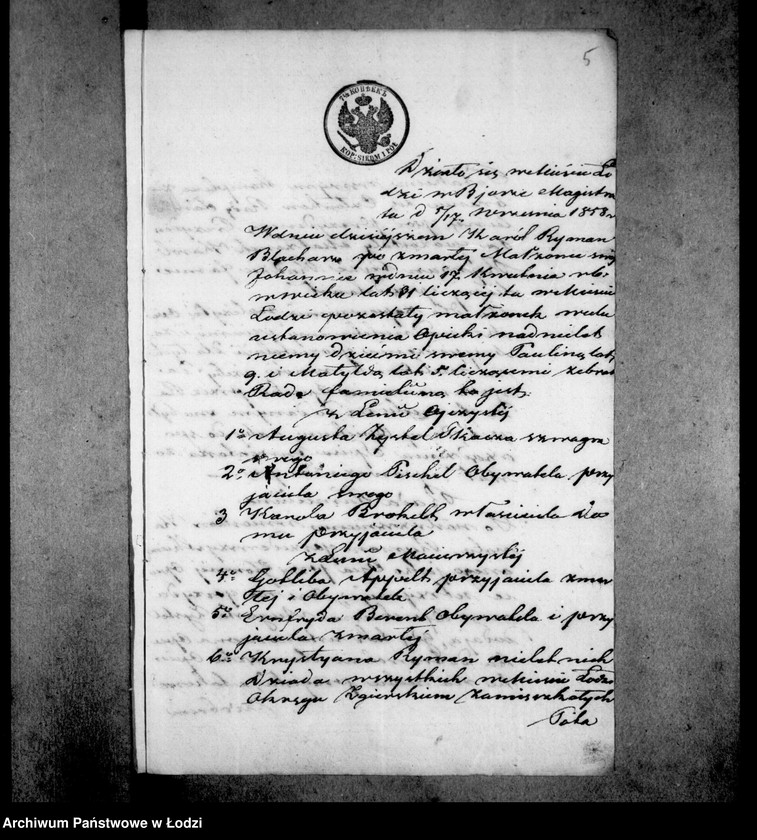 5
7½ КОПѢЕКЪ
KOP. SIEBM I POŁ
Działo się w Mieście Ło
dzi w Bjurze Magistra
tu d 5/17 Września 1858 r
W dniu dzisiejszem Karól Ryman
Blacharz po zmarłej Małżonce swej
Johannie w dniu 17 Kwietnia rb
w wieku lat 31 liczącej tu w Mieście
Łodzi pozostały małżonek w celu
ustanowienia Opieki nad nielet
niemy dziećmi swemy Pauliną lat
9. i Matyldą lat 5. liczącemi zebrał
Radę familiiną to jest:
z Lenii Ojczystej
1o Augusta Tkacza szwagra
swego
2o Antoniego Peschel Obywatela przy
jaciela swego
3 Karola właściciela Do
mu przyjaciela
z Lenii Macierzystej
4o Gotliba Appelt przyjaciela zmar
łej i Obywatela
5o Ernfryda Berent Obywatela i przy
jaciela zmarłej
6o Krystyana Ryman nieletnich
Dziada wszystkich w Mieście Łodzi
Okręgu Zgierskiem zamieszkałych
Archiwum Państwowe w Łodzi